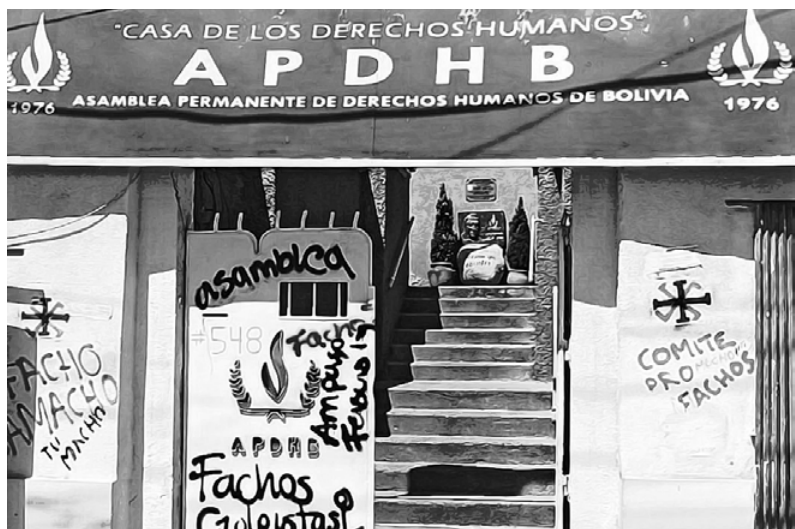 "CASA DE LOS DERECHOS HUMANOS"
A P D H B
ASAMBLEA PERMANENTE DE DERECHOS HUMANOS DE BOLIVIA
1976
1976
asamblea
#548
Facho
APDHB
Fachos
Golpistas
FACHO
CAMACHO
TU
MACHO
COMITE
PRO MACHO
FACHOS